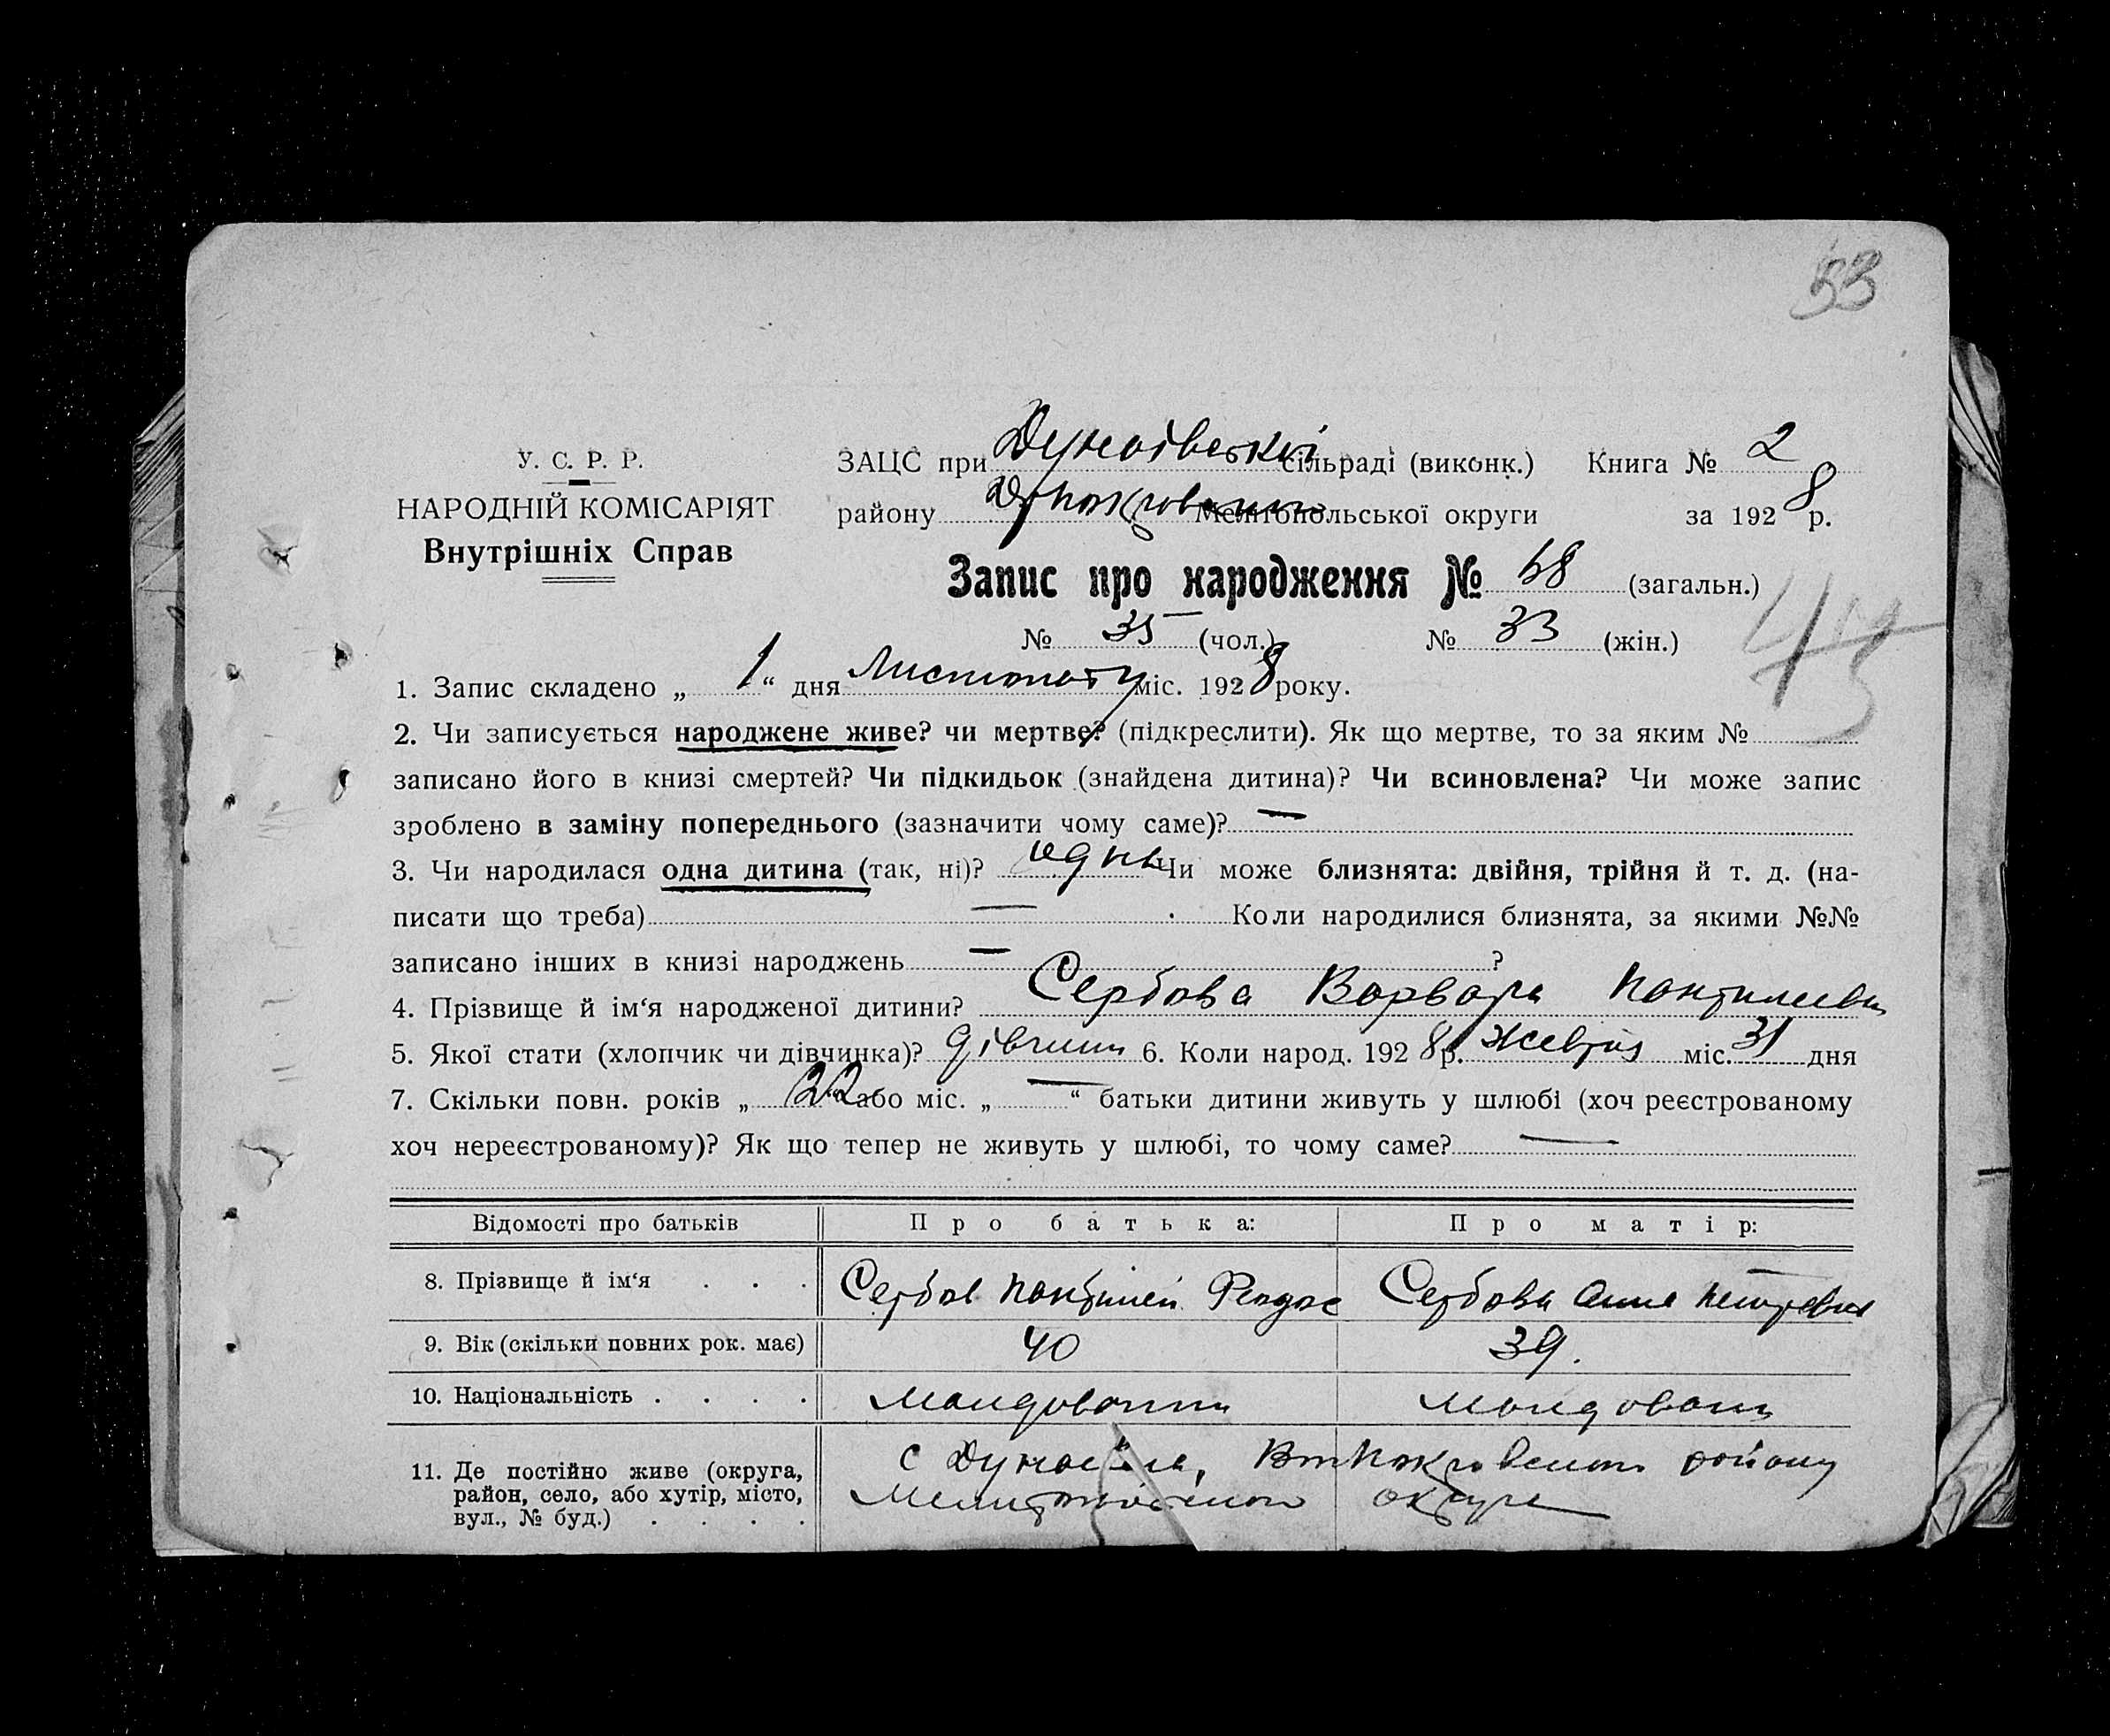 53
У. С. Р. Р.
НАРОДНІЙ КОМІСАРІЯТ
Внутрішніх Справ
ЗАЦС при Дунаївській сільраді (виконк.) Книга № 2
району Мелітопольської округи за 1928 р.
Запис про народження № 68 (загальн.)
№ 35 (чол.) № 33 (жін.)
1. Запис складено „ 1 “ дня Листопаду міс. 1928 року.
2. Чи записується народжене живе? чи мертве? (підкреслити). Як що мертве, то за яким №
записано його в книзі смертей? Чи підкидьок (знайдена дитина)? Чи всиновлена? Чи може запис
зроблено в заміну попереднього (зазначити чому саме)? —
3. Чи народилася одна дитина (так, ні)? одна Чи може близнята: двійня, трійня й т. д. (на-
писати що треба) — Коли народилися близнята, за якими №№
записано інших в книзі народжень — ?
4. Прізвище й ім‘я народженої дитини? Сербова Варвара
5. Якої стати (хлопчик чи дівчинка)? дівчина 6. Коли народ. 1928 р. Жовтня міс. 31 дня
7. Скільки повн. років „ 22 “ або міс. „ — “ батьки дитини живуть у шлюбі (хоч реєстрованому
хоч нереєстрованому)? Як що тепер не живуть у шлюбі, то чому саме? —
Відомості про батьків Про батька: Про матір:
8. Прізвище й ім‘я . . . Сербов Пантилей Сербова Анна Петровна
9. Вік (скільки повних рок. має) 40 39.
10. Національність . . . . молдованин молдован
11. Де постійно живе (округа,
район, село, або хутір, місто,
вул., № буд.) . . . .
с Дунаївка, району
округа